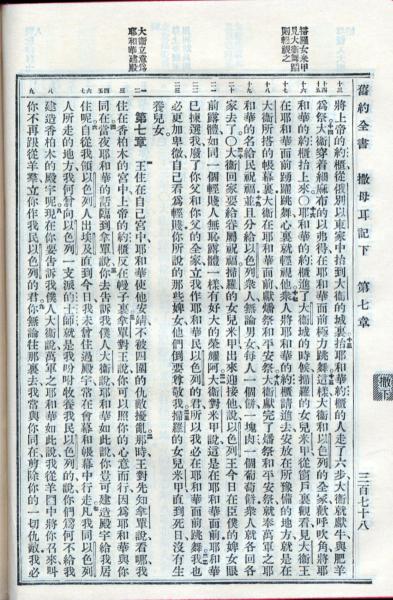 舊約全書 撒母耳記下 第七章 三百七十八
撒下
掃羅女米甲
見大衛舞蹈
則輕視之
將上帝的約櫃從俄別以東家中抬到大衛的城裏抬耶和華約櫃的人走了六步大衛就獻牛與肥羊
為祭大衛穿着細麻布的以弗得在耶和華面前極力跳舞這樣大衛和以色列的全家歡呼吹角將耶
和華的約櫃抬上來○耶和華的約櫃進了大衛城的時候掃羅的女兒米甲從窗戶裏觀看見大衛王
在耶和華面前踴躍跳舞心裏就輕視他衆人將耶和華的約櫃請進去安放在所豫備的地方就是在
大衛所搭的帳幕裏大衛在耶和華面前獻燔祭和平安祭大衛獻完了燔祭和平安祭就奉萬軍之耶
和華的名給民祝福並且分給以色列衆人無論男女每人一個餅一塊肉一個葡萄餅衆人就各回各
家去了○大衛回家要給眷屬祝福掃羅的女兒米甲出來迎接他說以色列王今日在臣僕的婢女眼
前露體如同一個輕賤人無恥露體一樣有好大的榮耀阿大衛對米甲說這是在耶和華面前耶和華
已揀選我廢了你父和你父的全家立我作耶和華民以色列的君所以我必在耶和華面前跳舞我也
必更加卑微自己看為輕賤你所說的那些婢女他們倒要尊敬我掃羅的女兒米甲直到死日沒有生
養兒女
大衛立意為
耶和華建殿
第七章 王住在自己宮中耶和華使他安靖不被四圍的仇敵擾亂那時王對先知拿單說看哪我
住在香柏木的宮中上帝的約櫃反在幔子裏拿單對王說你可以照你的心意而行因為耶和華與你
同在當夜耶和華的話臨到拿單說你去告訴我僕人大衛說耶和華如此說你豈可建造殿宇給我居
住呢自從我領以色列人出埃及直到今日我未曾住過殿宇常在會幕和帳幕中行走凡我同以色列
人所走的地方我何曾向以色列一支派的士師就是我吩咐牧養我民以色列的說你們為何不給我
建造香柏木的殿宇呢現在你要告訴我僕人大衛說萬軍之耶和華如此說我從羊圈中將你召來叫
你不再跟從羊羣立你作我民以色列的君你無論往那裏去我當與你同在剪除你的一切仇敵我必